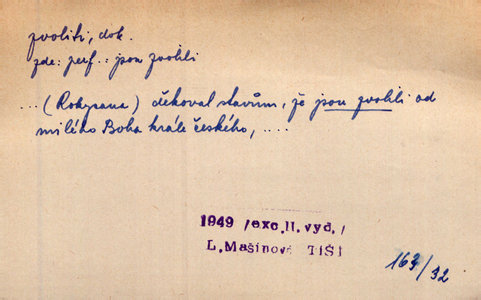 zvoliti, dok.
zde: perf.: jsou zvolili
...(Rokycana) děkoval stavům, že jsou zvolili od
milého Boha krále českého, ....
1949 /exc.II.vyd./
L.Mašínová TIŠI
163/32